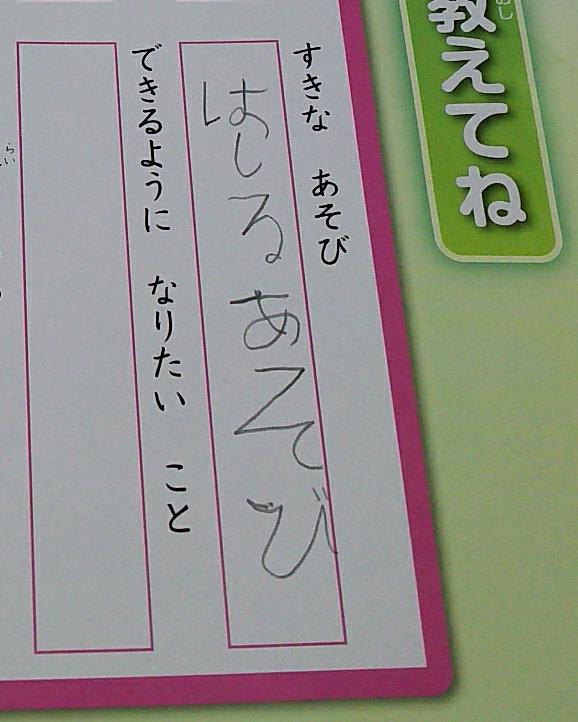 教えてね
すきな あそび
はしるあそび
できるように なりたい こと
らい